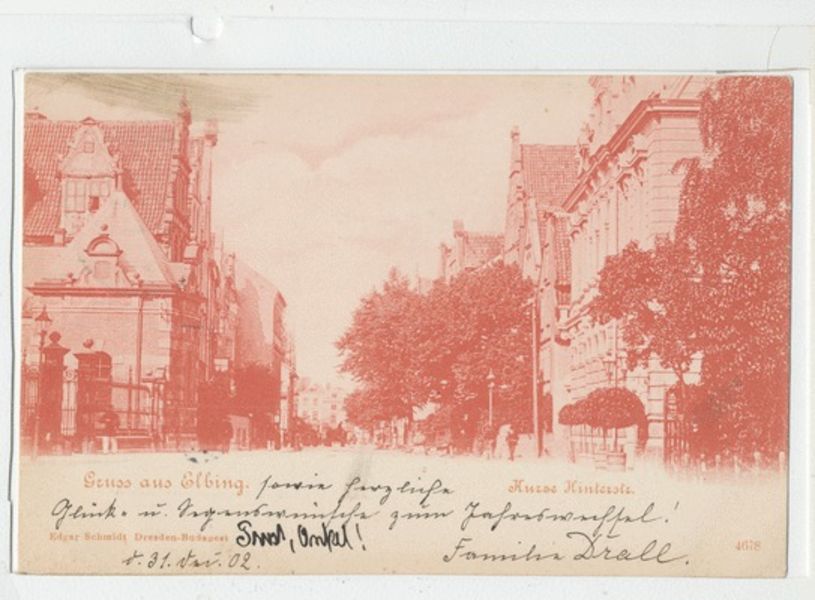 Gruss aus Elbing. sowie herzliche Kurze Hinterstr.
Glück- u. Segenswünsche zum Jahreswechsel!
Edgar Schmidt, Dresden-Budapest Prost, Onkel! Familie Drall. 4678
d. 31. Dez. 02.